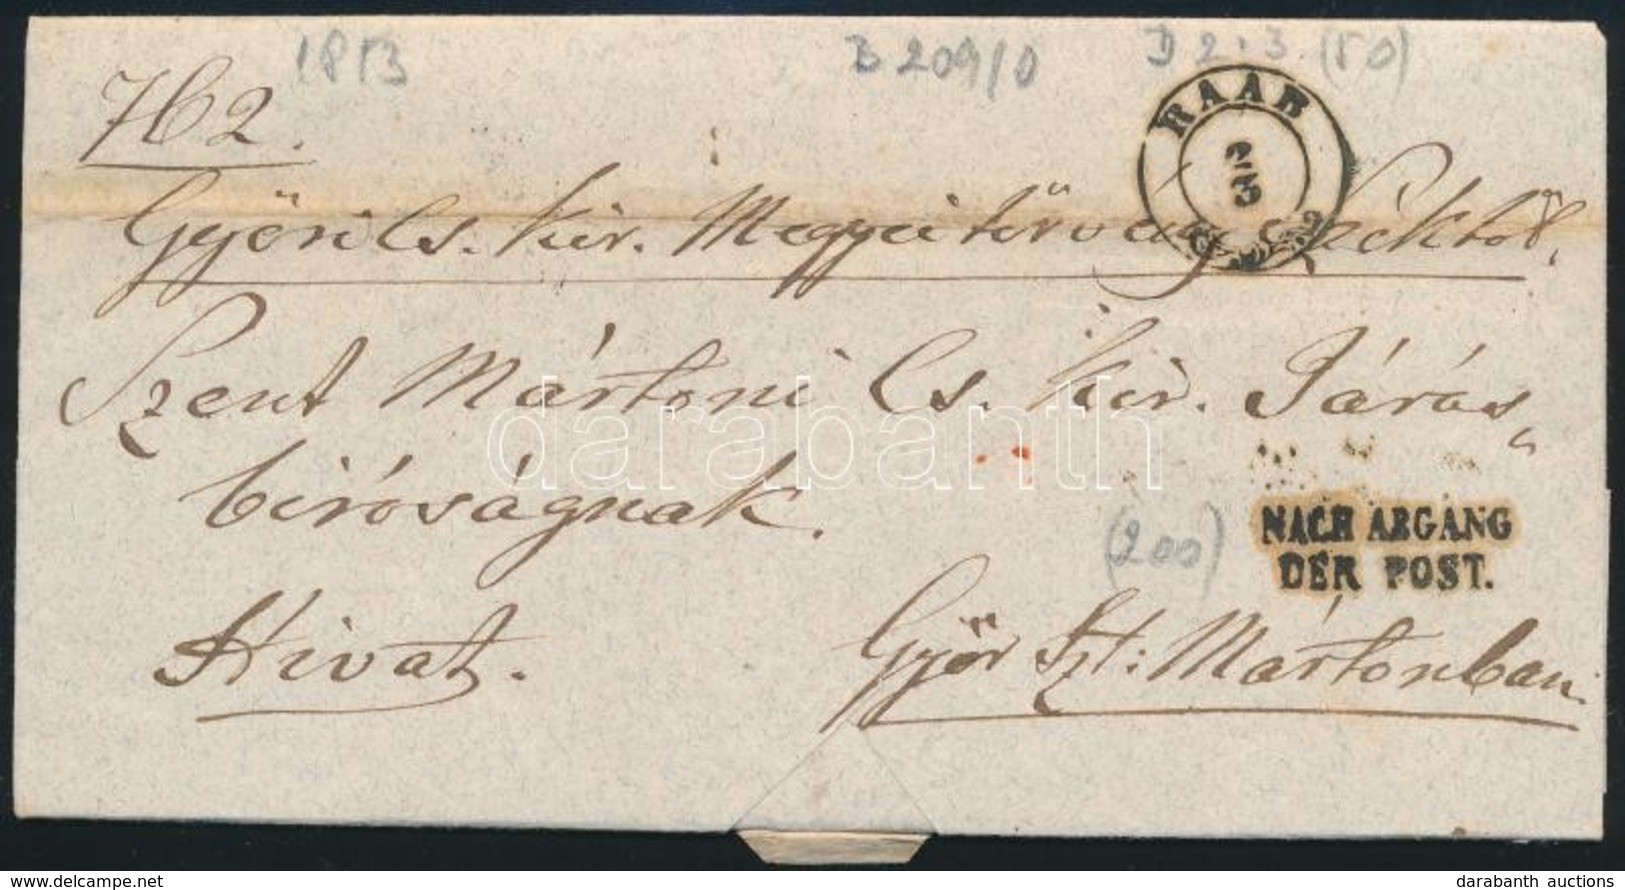 1853 B 209/0 D 2.3. (50)
762.
RAAB
2/3
Győri Cs. kir. Megyei törvényszéktől,
Szent Mártoni Cs. kir. Járás„
biróságnak.
darabanth
(200)
NACH ABGANG
DER POST.
Hivat.
Győr Szt: Mártonban.
www.darabanth.com
darabanth auctions